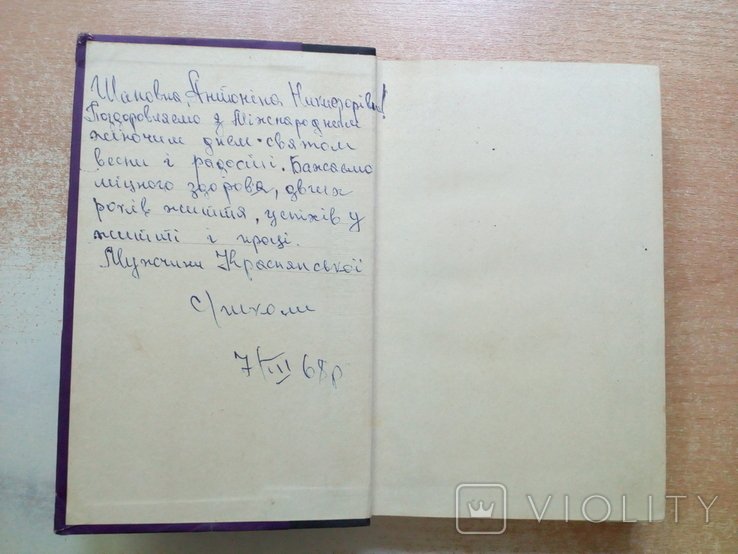 Шановна Антоніна Никифорівна!
Поздоровляємо з Міжнародним
жіночим днем - святом
весни і радості. Бажаємо
міцного здоров'я, довгих
років життя, успіхів у
житті і праці.
Мужчини Краснянської
с/школи
7/III 68р
VIOLITY